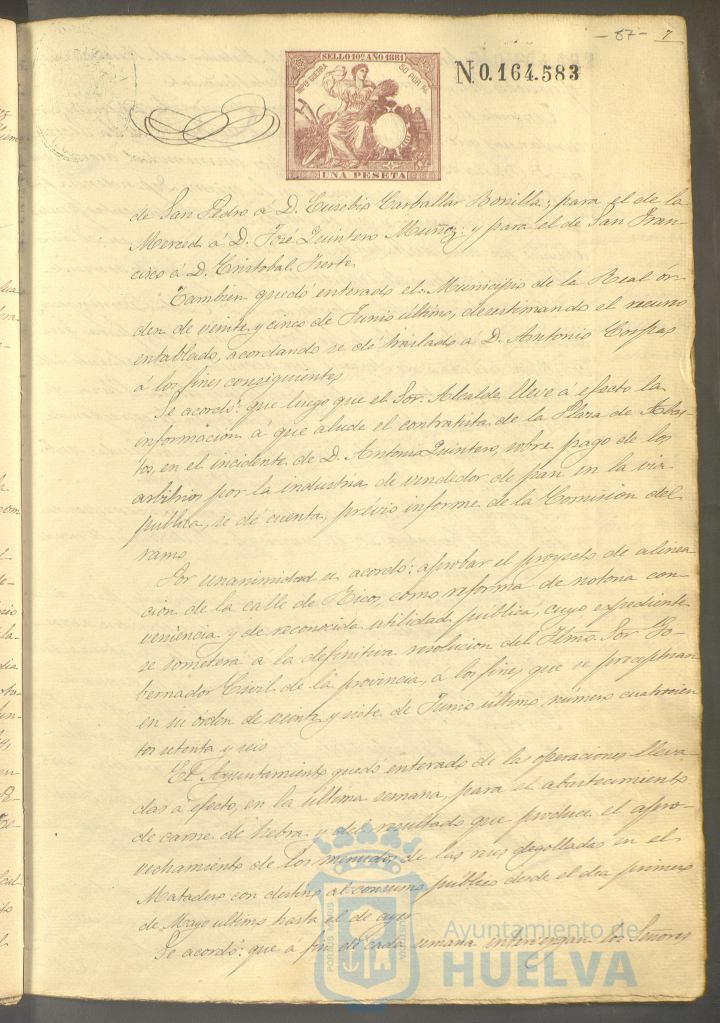 - 67 - 7
SELLO 10º AÑO 1881
IMPTO GUERRA
50 POR 100
UNA PESETA
N0.164.583
de San Pedro á D. Eusebio Carballar Bonilla; para el de la
Merced á D. José Quintero Muñoz; y para el de San Fran-
cisco á D. Cristobal
Tambien quedó enterado el Municipio de la Real ór-
den de veinte y cinco de Junio último, desestimando el recurso
entablado, acordando se dé traslado á D. Antonio Corpas
á los fines consiguientes
Se acordó: que luego que el Sor. Alcalde lleve á efecto la
informacion á que alude el contratista de la Plaza de Abas-
tos, en el incidente de D. Antonio Quintero, sobre pago de los
arbitrios por la industria de vendedor de pan en la via
pública, se dé cuenta, prévio informe de la Comision del
ramo
Por unanimidad se acordó: aprobar el proyecto de alinea
cion de la calle de Ricos, como reforma de notoria con-
veniencia y de reconocida utilidad pública, cuyo expediente
se someterá á la definitiva resolucion del Iltmo Sor Go-
bernador Civil de la provincia, á los fines que se preceptuan
en su órden de veinte y siete de Junio último, número cuatrocien
tos setenta y seis
El Ayuntamiento quedó enterado de las operaciones lleva-
das á efecto, en la última semana, para el abastecimiento
de carne de hebra y del resultado que produce el apro-
vechamiento de los menudos de las reses degolladas en el
Matadero con destino al consumo público desde el dia primero
de Mayo último hasta el de ayer
Se acordó: que á fin de cada semana intervengan los Señores
PORTUS MARIS
ET TERRAE CUSTODIA
Ayuntamiento de
HUELVA